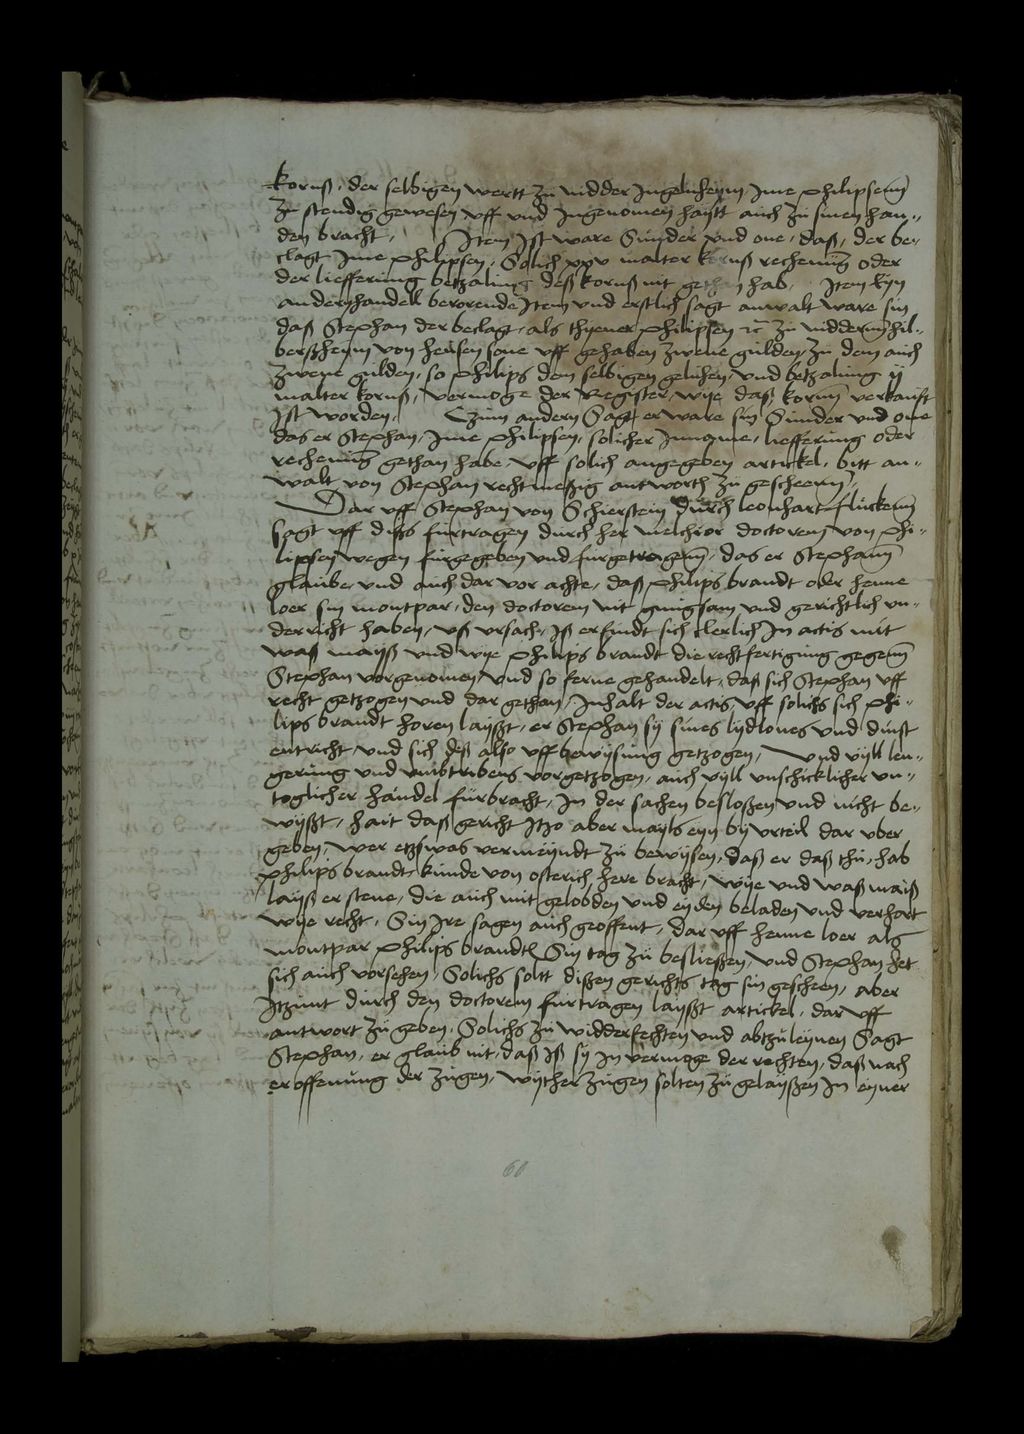 Kornß, der selbigen wertt zu nidder Ingelnheym Ime Philipsenn
zu stendig gewesen vff vnd Ingenomen haytt auch zu sinen han-
den bracht, Item Ist ware Sunder vnd one, daß, der be-
clagt Ime Philipsen, Solich xxv malter Kornß rechenung oder
der liefferung betzalung deß kornß nit gethan hab, Item Eyn
andern handell berorende Item vnd erstlich sagt anwalt ware sin
daß Stephan der beclagt, als thyener Philipsen rc zu niddernhil-
berßheym von henßen sone vff gehaben zwene gulden, zu dem auch
zwene gulden, so Philips dem selbigen gelihen, vnd betzalung ij
malter kornß, vermoge der Register, wye daß korn verkaufft
Ist worden, Czum andern Sagt er ware sin Sunder vnd one
das er Stephan, Ime Philipsen, solicher Inname, liefferung oder
rechenung gethan habe, vff solich angegeben artickel, bitt an-
walt von Stephan rechtmeßig antworth zu gescheenn,
Dar vff Stephan von Schierstein durch leonhart fluckenn
sagt vff diß furtragen durch her melchior doctorem von Phi-
lipsen wegen furgegeben vnd furgetragenn, das er Stephann
glaube vnd auch dar vor achte, daß Philips brandt oder henne
loer sin montpar, den doctorem nit gnugsam vnd gerichtlich vn-
derricht haben, vß vrsach, Iß erfindt sich clerlich In actis mit
waß mayß vnd wye Philips brandt die rechtfertigung gegenn
Stephan vorgenomen vnd so ferne gehandelt, daß sich Stephan vff
recht getzogen vnd dar gethan, Inhalt der actis, vff solichs sich Phi-
lips brandt horen layßt, er Stephan sij sines lydlones vnd dinst
entricht vnd sich deß also vff bewysung getzogen, vnd vyll len-
gerung vnd vmbtribens vorgetzogen, auch vyll vnschicklicher vn-
toglicher handel furbracht, In der sachen besloßen vnd nicht be-
wyßt, hait daß gericht Itzo aber mayls eyn by vrteil dar vber
geben, wer etzwas vermeyndt zu bewysen, daß er daß thu, hab
Philips brandt kunde von osterich here bracht, wye vnd waß maiß
layß er stene, die auch mit gelobden vnd eyden beladen vnd verhort
wye recht, Sin Ire sagen auch geoffent, dar vff henne loer als
montpar Philips brandts Sin tag zu besließen, vnd Stephan het
sich auch vorsehen, Solichs soltt dißen gerichts tag sin gescheen, aber
Itzunt durch den doctorem furtragen layßt artickel, dar vff
antwort zu geben, Solichs zu widderfechten vnd abtzuleynen Sagt
Stephan, er glaub nit, daß Iß sy In vermoge der rechten, daß nach
eroffenung der zugen, wyther zugen solten zu gelayßen In eyner
60